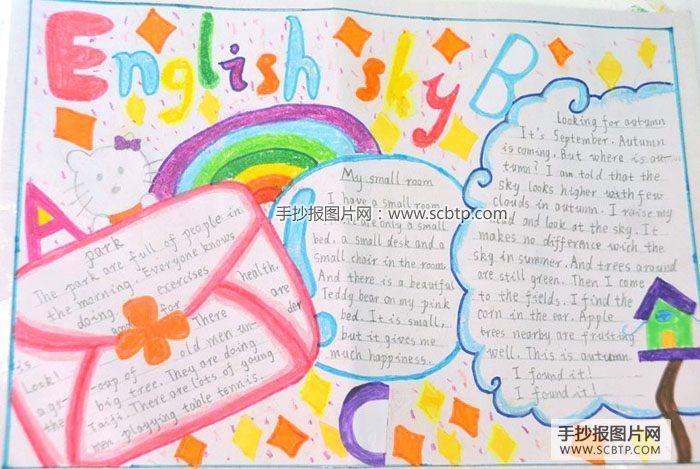 English sky
A
B
C
park
The park are full of people in
the morning. Everyone knows
doing exercises
good for health.
is There are
Look! old men un-
a gr- -oup of der
the big tree. They are doing
Taiji. There are lots of young
men playying table tennis.
My small room
I have a small room.
There are only a small
bed, a small desk and a
small chair in the room.
And there is a beautiful
Teddy bear on my pink
bed. It is small,
but it gives me
much happiness.
looking for autumn
It's September. Autumn
is coming. But where is au-
tumn? I am told that the
sky looks higher with few
clouds in autumn. I raise my
head and look at the sky. It
makes no difference wich the
sky in summer. And trees around
are still green. Then I come
to the fields. I find the
corn in the ear. Apple
trees nearby are fruiting
well. This is autumn.
I found it!
I found it!
手抄报图片网:www.scbtp.com
手抄报图片网
WWW.SCBTP.COM